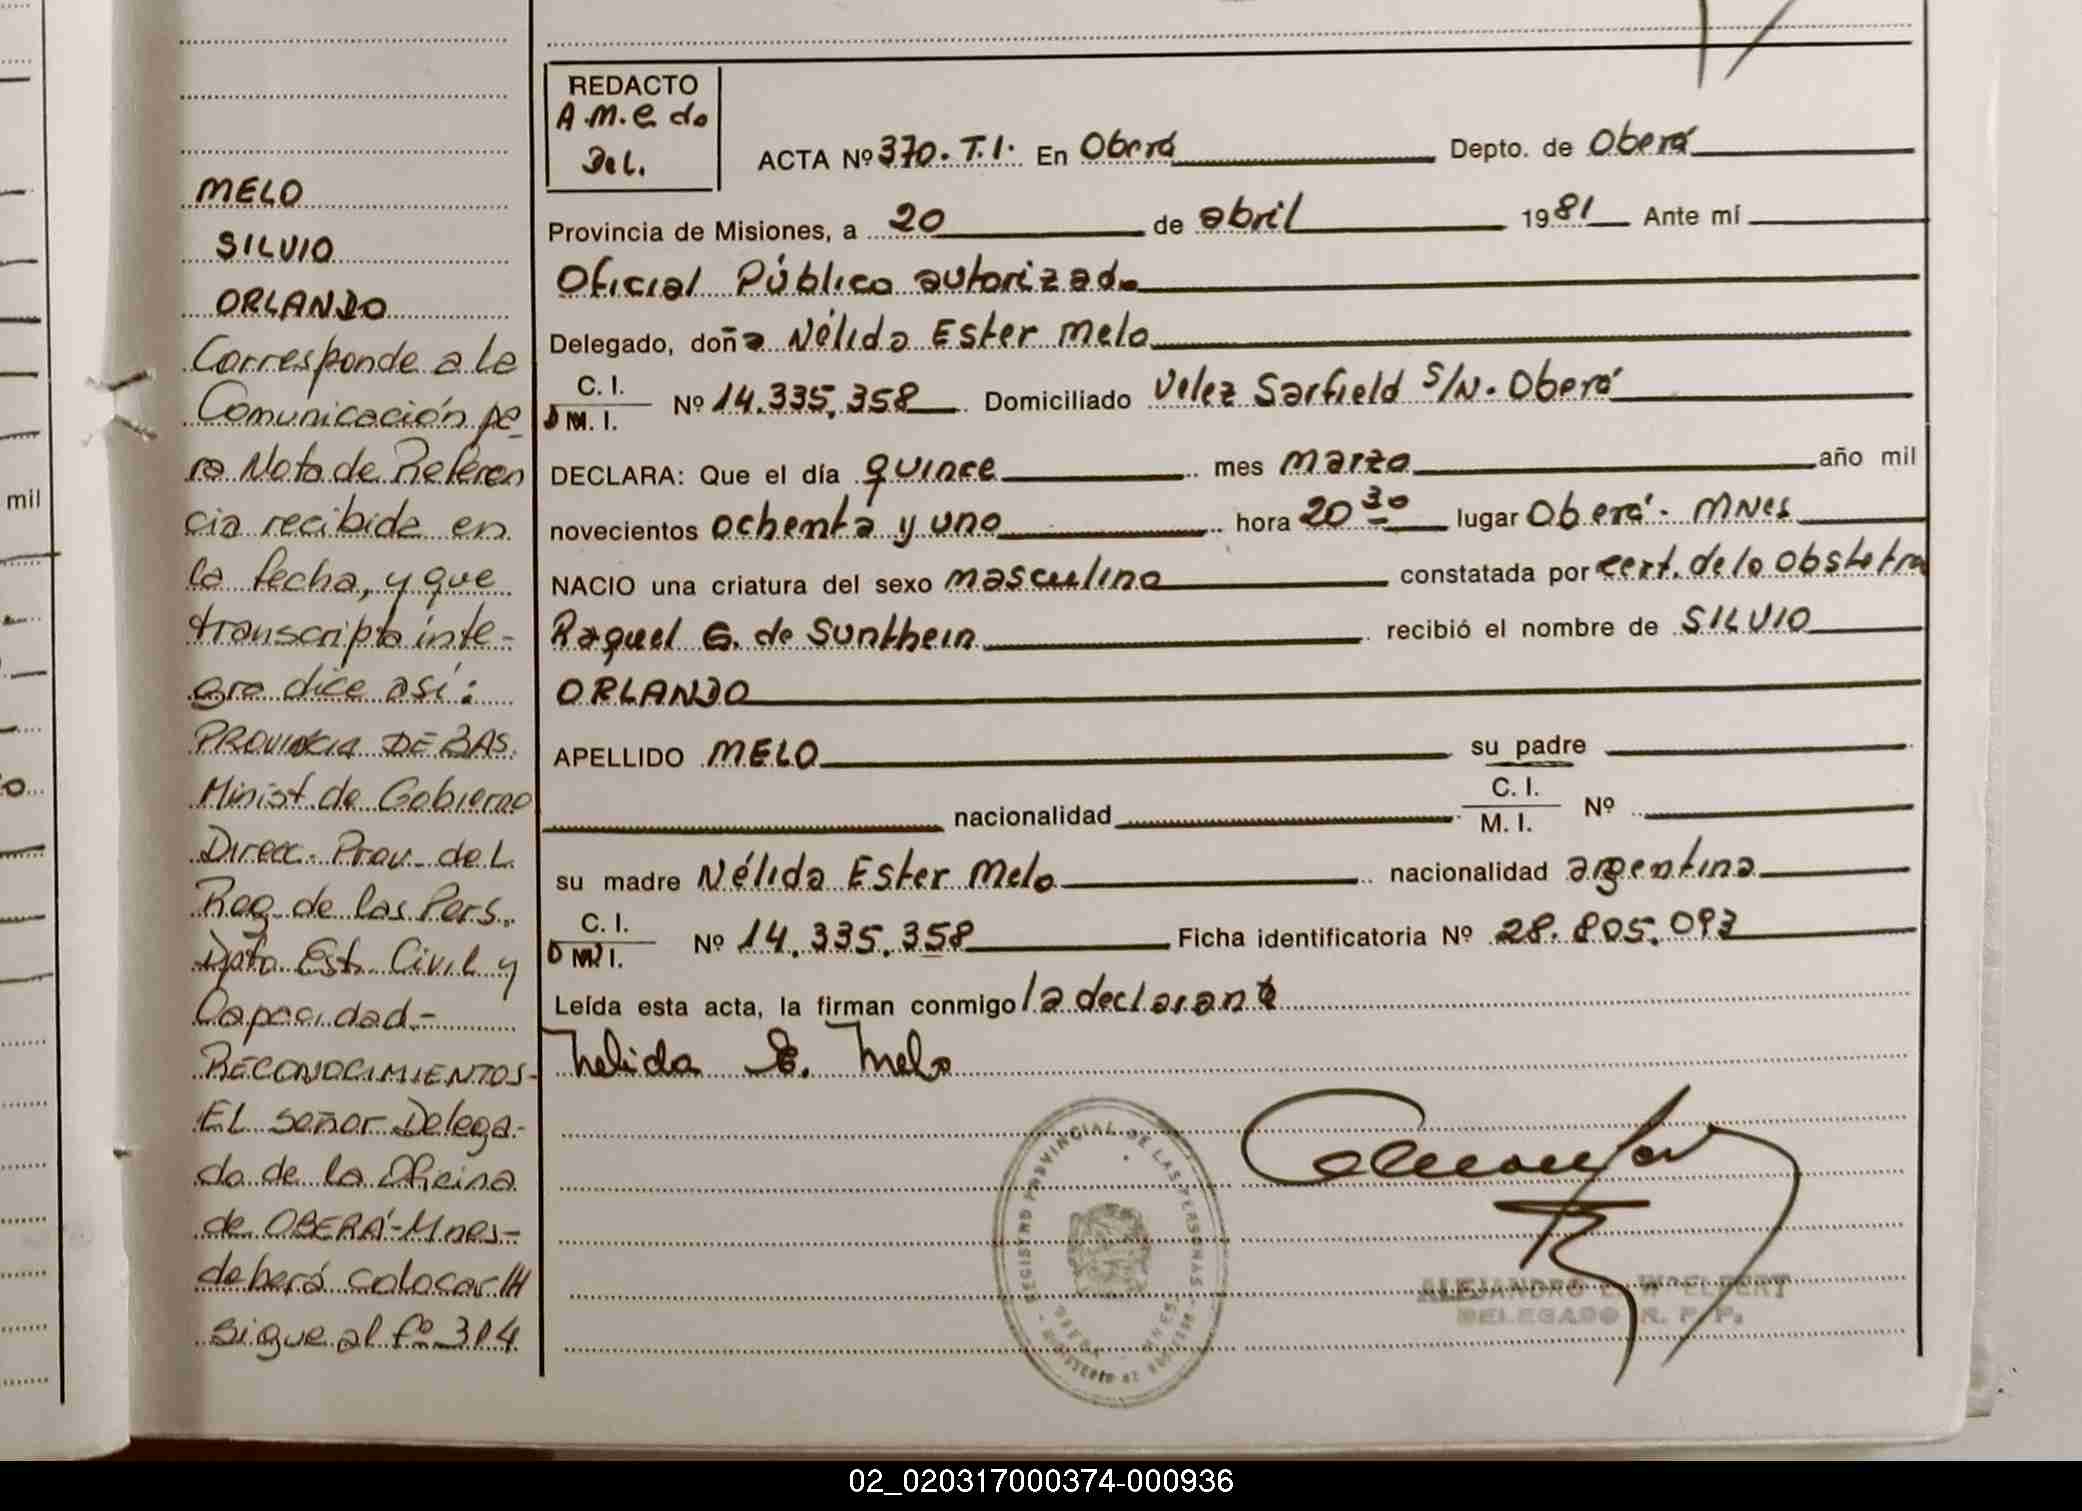 MELO
SILVIO
ORLANDO
Corresponde a la
Comunicación pa-
ra Nota de Referen
cia recibida en
la fecha, y que
transcripta inte-
gra dice así:
PROVINCIA DE BAS.
Minist. de Gobierno
Direcc. Prov. de L.
Reg. de las Pers.
Dpto. Est. Civil y
Capacidad.-
RECONOCIMIENTOS-
EL señor Delega-
do de la Oficina
de OBERÁ-Mnes-
deberá colocar
sigue al fº 314
REDACTO
A.M.e do
Del.
ACTA Nº 370. T.I. En Oberá Depto. de Oberá
Provincia de Misiones, a 20 de abril 1981 Ante mí
Oficial Público autorizado
Delegado, doña Nélida Ester Melo
C. I.
D M. I. Nº 14.335.358 Domiciliado Velez Sarfield S/N. Oberá
DECLARA: Que el día quince mes marzo año mil
novecientos ochenta y uno hora 20 30 lugar Oberá - MNes
NACIO una criatura del sexo masculino constatada por cert. de la obstetra
Raquel G. de Sunthein recibió el nombre de SILVIO
ORLANDO
APELLIDO MELO su padre
nacionalidad C. I. M. I. Nº
su madre Nélida Ester Melo nacionalidad argentina
C. I.
D M. I. Nº 14.335.358 Ficha identificatoria Nº 28.805.093
Leída esta acta, la firman conmigo la declarante
Nelida E. Melo
REGISTRO PROVINCIAL DE LAS PERSONAS
ALEJANDRO
DELEGADO R. P. P.
mil
02_020317000374-000936